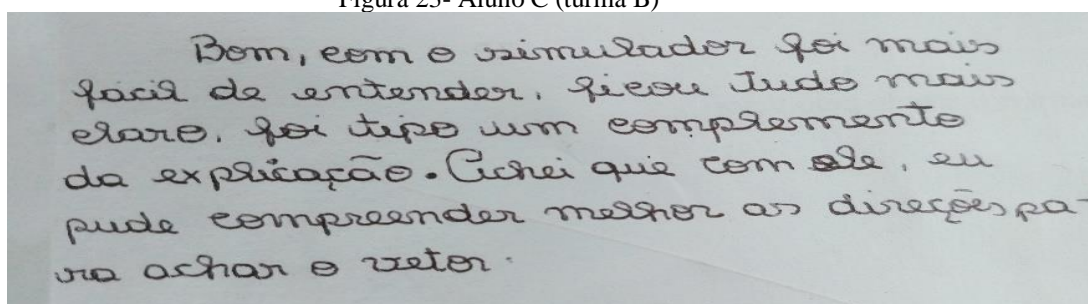 Figura 23- Aluno C (turma B)
Bom, com o simulador foi mais
fácil de entender, ficou tudo mais
claro, foi tipo um complemento
da explicação. Achei que com ele, eu
pude compreender melhor as direções pa-
ra achar o vetor.